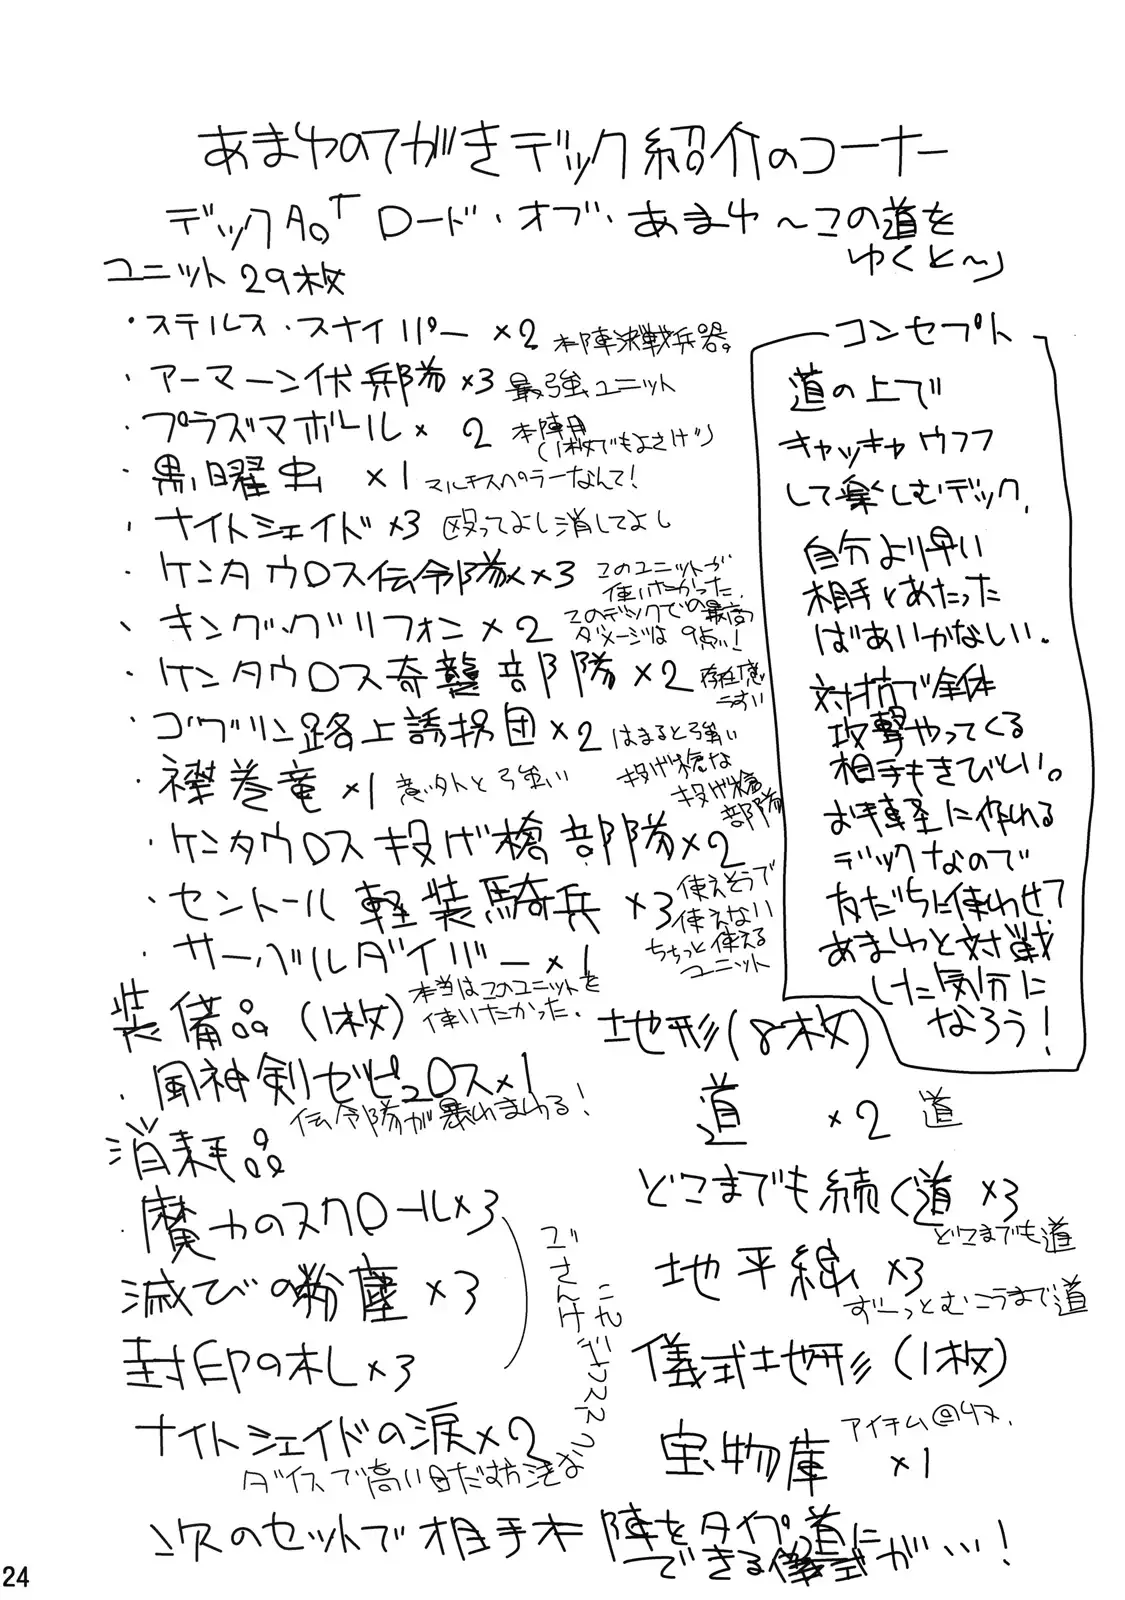 あまゆのてがきデック紹介のコーナー
デックA。「ロード・オブ・あまゆ～この道を
ゆくと～」
ユニット29枚
・ステルス・スナイパー×2 本陣決戦兵器。
・アーマーン伏兵部隊×3 最強ユニット
・プラズマボール×2 本陣用
(1枚でもよさげ)
・黒曜虫 ×1 マルチスペラーなんて!
・ナイトシェイド×3 殴ってよし消してよし
・ケンタウロス伝令隊×3 このユニットが
使いたかった。
・キング・グリフォン×2 このデックでの最高
ダメージは9点い!
・ケンタウロス奇襲部隊×2 存在感
うすい
・ゴブリン路上誘拐団×2 はまると強い
・襟巻竜×1 意外と強い
・ケンタウロス投げ槍部隊×2
投げ槍な
投げ槍
部隊
・セントール軽装騎兵×3 使えそうで
使えない
ちょっと使える
ユニット
・サーベルダイバー×1
本当はこのユニットを
使いたかった。
装備品(1枚)
・風神剣ゼピュロス×1
伝令隊が暴れまわる!
消耗品
・魔力のスクロール×3
滅びの粉塵×3
封印の札×3
ごさんけ
ナイトシェイドの涙×2
ダイスで高い目だす方法な
コンセプト
道の上で
キャッキャウフフ
して楽しむデック。
自分より早い
相手とあたった
ばあいかなしい。
対抗で全体
攻撃やってくる
相手もきびしい。
お手軽に作れる
デックなので
友だちに使わせて
あまゆと対戦
した気分に
なろう!
地形(8枚)
道 ×2 道
どこまでも続く道×3
どこまでも道
地平線×3
ずーっとむこうまで道
儀式地形(1枚)
宝物庫×1
次のセットで相手本陣をタイプ道に
できる儀式が…!
24